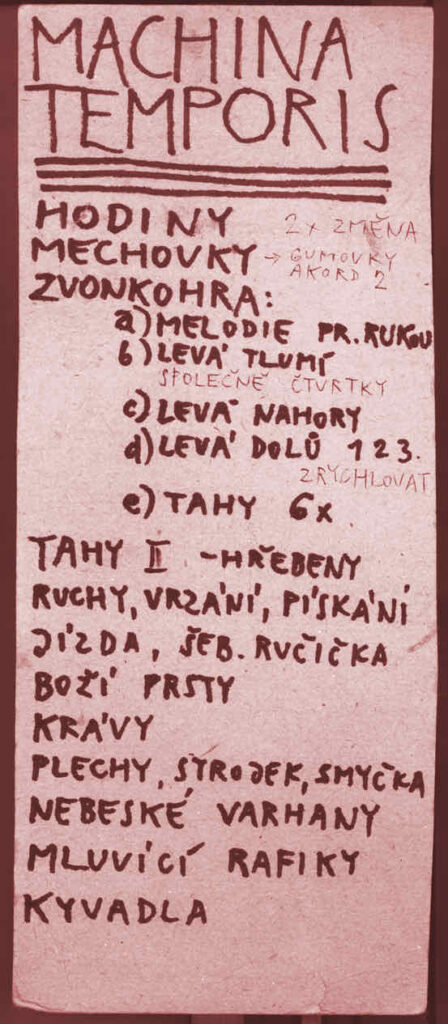 MACHINA
TEMPORIS
HODINY 2x ZMĚNA
MECHOVKY → GUMOVKY
AKORD 2
ZVONKOHRA:
a) MELODIE PR. RUKOU
b) LEVÁ TLUMÍ
SPOLEČNĚ ČTVRTKY
c) LEVÁ NAHORY
d) LEVÁ DOLŮ 1 2 3.
ZRYCHLOVAT
e) TAHY 6x
TAHY II - HŘEBENY
RUCHY, VRZÁNÍ, PÍSKÁNÍ
JÍZDA, ŠEB. RUČIČKA
BOŽÍ PRSTY
KRÁVY
PLECHY, STROJEK, SMYČKA
NEBESKÉ VARHANY
MLUVÍCÍ RAFIKY
KYVADLA